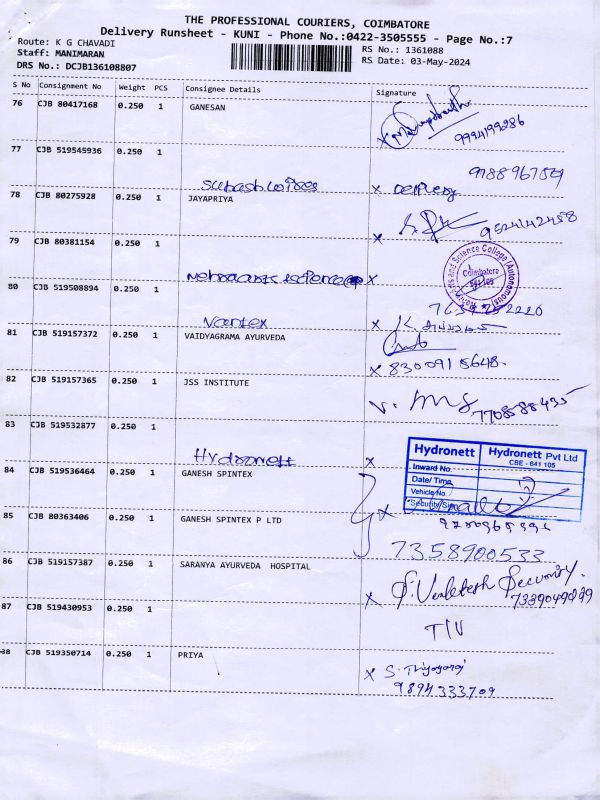 THE PROFESSIONAL COURIERS, COIMBATORE
Delivery Runsheet - KUNI - Phone No.:0422-3505555 - Page No.:7
Route: K G CHAVADI
RS No.: 1361088
Staff: MANIMARAN
RS Date: 03-May-2024
DRS No.: DCJB136108807
S No Consignment No Weight PCS Consignee Details Signature
76 CJB 80417168 0.250 1 GANESAN
9994199286
77 CJB 519545936 0.250 1
9788967509
x
78 CJB 80275928 0.250 1 JAYAPRIYA
9524142458
x
79 CJB 80381154 0.250 1
and Science College (Autonomous)
Coimbatore
641 105
x
80 CJB 519508894 0.250 1
Vantex x
81 CJB 519157372 0.250 1 VAIDYAGRAMA AYURVEDA
x 8300915648
82 CJB 519157365 0.250 1 JSS INSTITUTE
83 CJB 519532877 0.250 1
Hydronett x
Hydronett Hydronett Pvt Ltd
CBE - 641 105
Inward No.
Date/ Time
Vehicle No.
84 CJB 519536464 0.250 1 GANESH SPINTEX
x
85 CJB 80363406 0.250 1 GANESH SPINTEX P LTD
7358900533
86 CJB 519157387 0.250 1 SARANYA AYURVEDA HOSPITAL
x S. Venkatesh Security.
87 CJB 519430953 0.250 1
T/V
88 CJB 519350714 0.250 1 PRIYA
x S. Thiyagaraj
9894333709